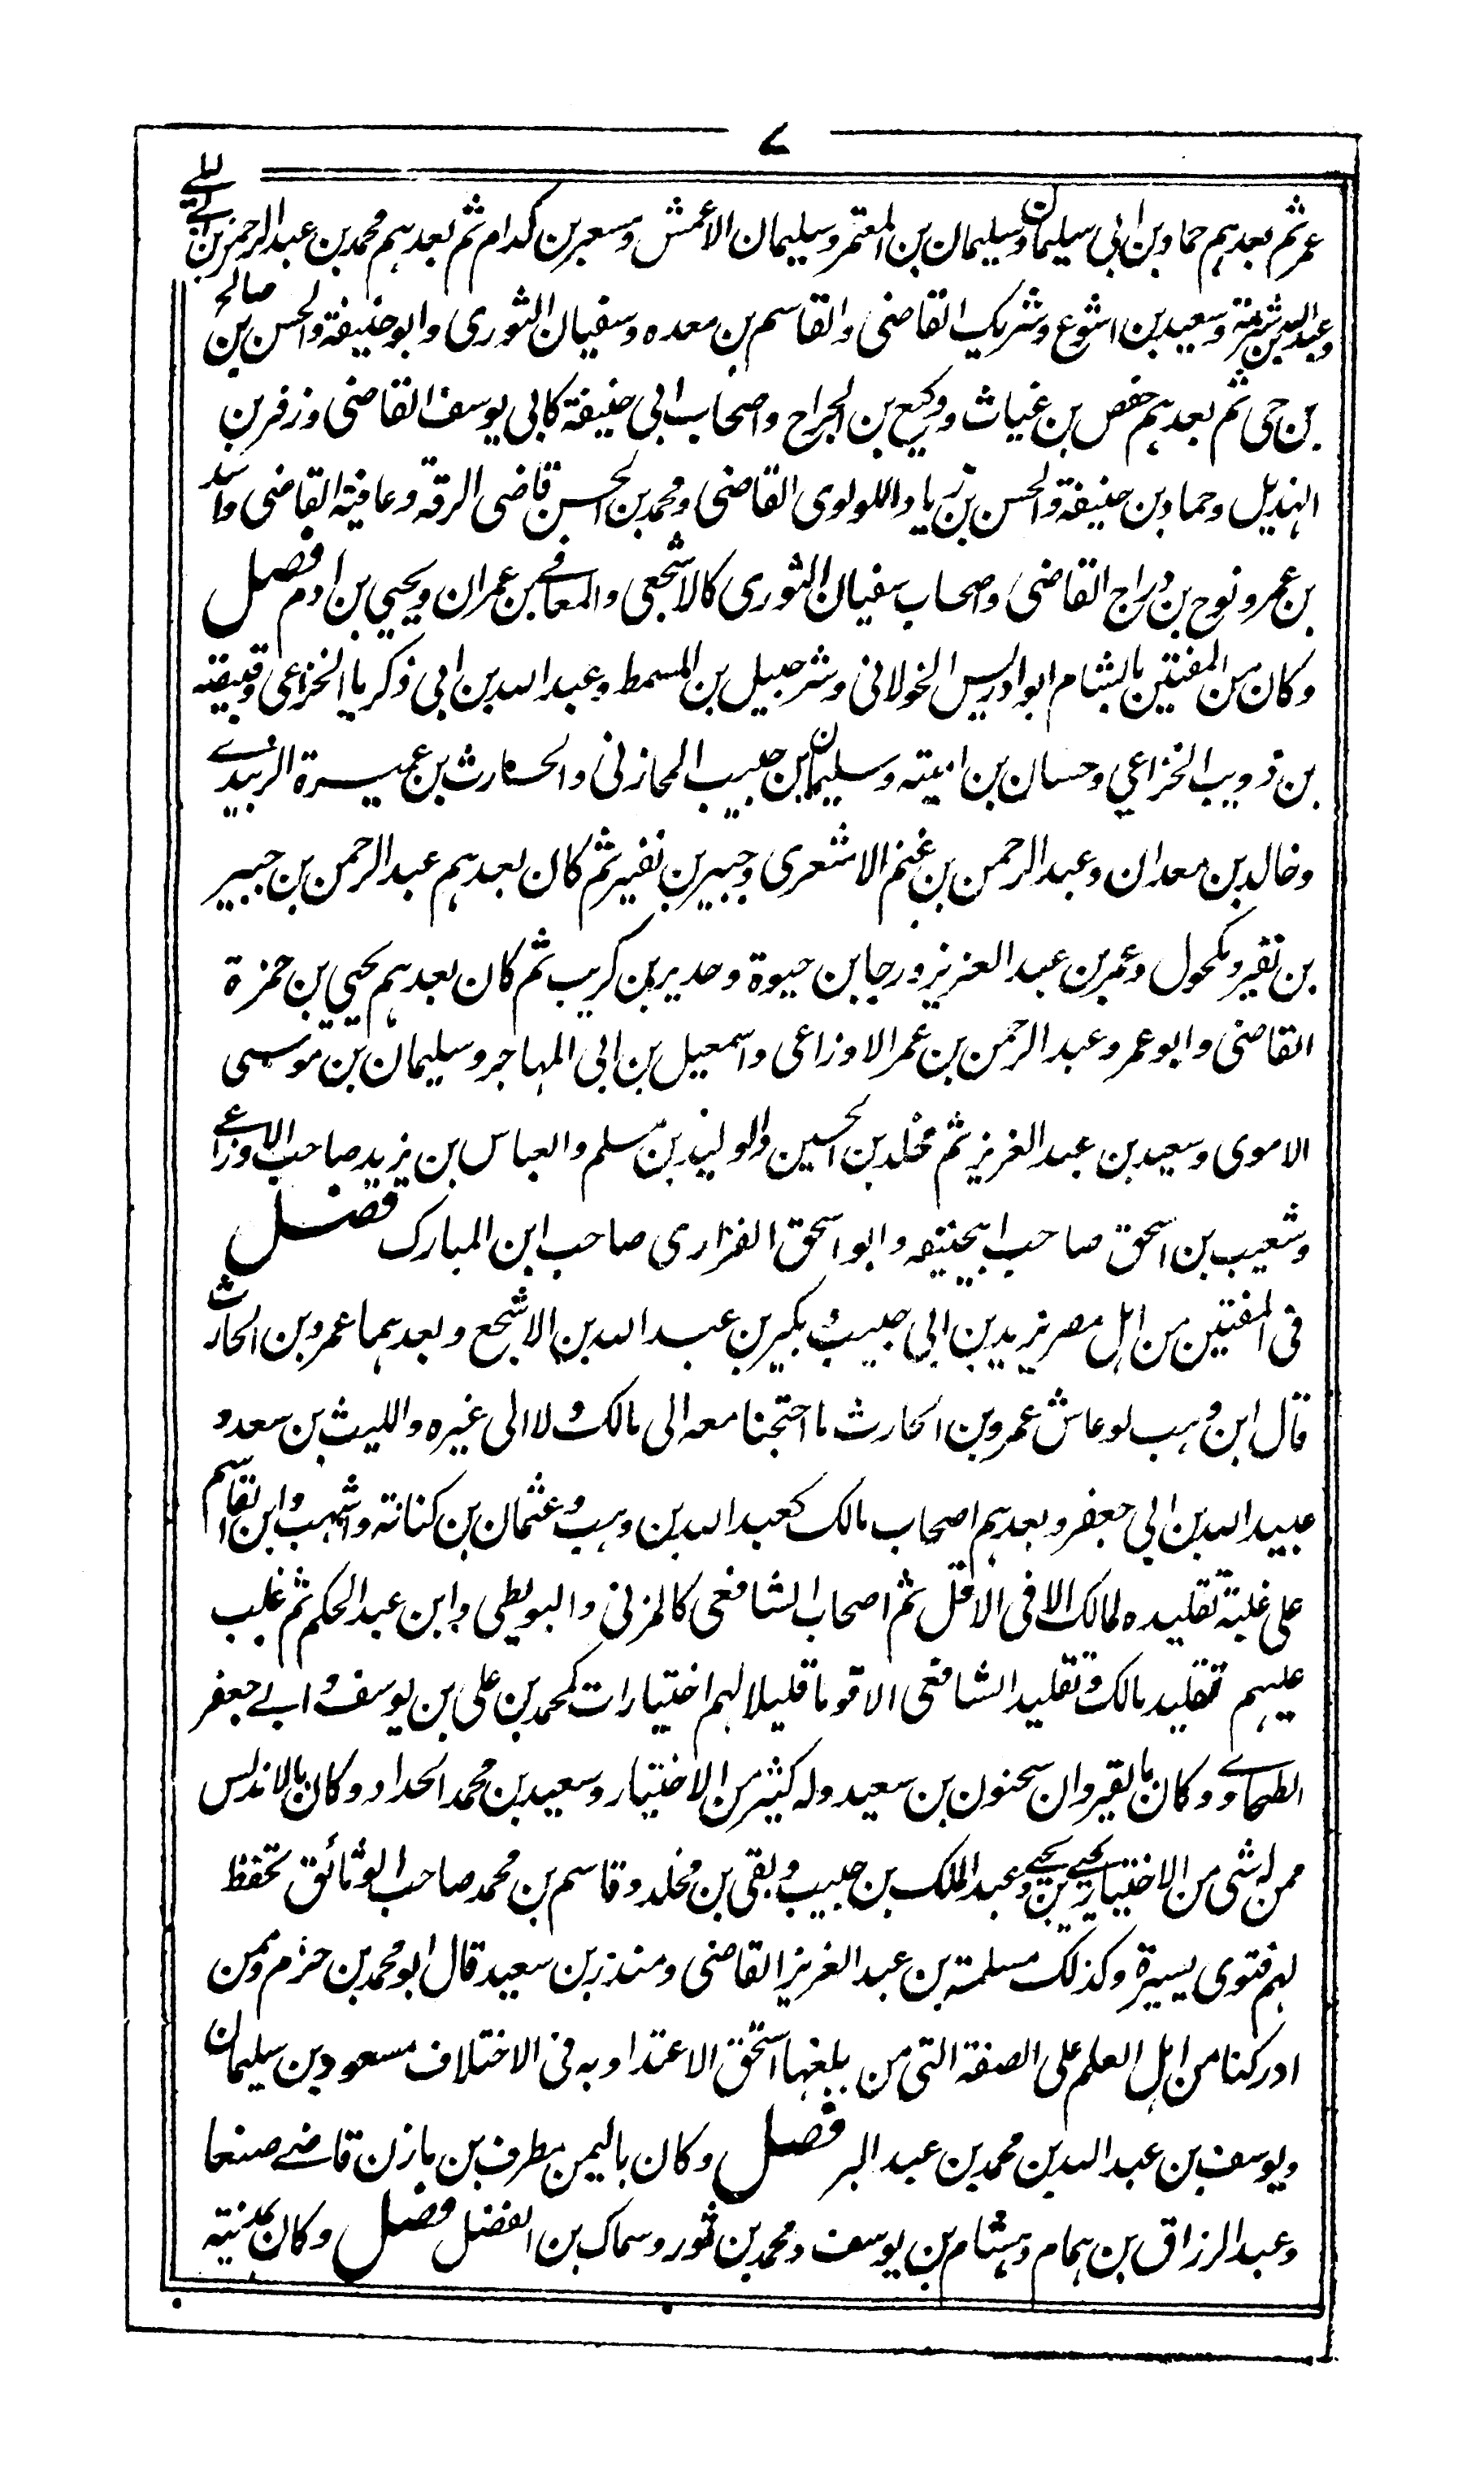 ٧
عمر ثم بعدهم حماد بن ابی سلیمان وسلیمان بن المعتمر وسلیمان الاعمش ومسعر بن کدام ثم بعدهم محمد بن عبد الرحمن بن ابی لیلے
وعبد الله بن شبرمة وسعید بن اشوع وشریک القاضی والقاسم بن معده وسفیان الثوری وابو حنیفة والحسن بن صالح
بن حی ثم بعدهم حفص بن غیاث ووکیع بن الجراح واصحاب ابی حنیفة کابی یوسف القاضی وزفر بن
الهذیل وحماد بن حنیفة والحسن بن زیاد اللولوی القاضی ومحمد بن الحسن قاضی الرقة وعافیة القاضی واسد
بن عمر ونوح بن دراج القاضی واصحاب سفیان الثوری کالاشجعی والمعافے بن عمران ویحیی بن ادم فصل
وکان من المفتین بالشام ابو ادریس الخولانی وشرحبیل بن المسمط وعبد الله بن ابی ذکریا الخزاعی وقبیصة
بن ذویب الخزاعی وحسان بن امیته وسلیمان بن حبیب المحازنی والحارث بن عمیرة الزبیدے
وخالد بن معدان وعبد الرحمن بن غنم الاشعری وجبیر بن نفیر ثم کان بعدهم عبد الرحمن بن جبیر
بن نفیر ومکحول وعمر بن عبد العزیز ورجا بن حیوة وحدیر بن کریب ثم کان بعدهم یحیی بن حمزة
القاضی وابو عمرو عبد الرحمن بن عمر الاوزاعی واسمعیل بن ابی المهاجر وسلیمان بن موسی
الاموی وسعید بن عبد العزیز ثم مخلد بن الحسین والولید بن مسلم والعباس بن یزید صاحب الاوزاعے
وشعیب بن اسحق صاحب ابیحنیفه وابو اسحق الفزاری صاحب ابن المبارک فصل
فی المفتین من اهل مصر یزید بن ابی حبیب وبکیر بن عبد الله بن الاشجع وبعدهما عمرو بن الحارث
قال ابن وهب لو عاش عمرو بن الحارث ما احتجنا معه الی مالک ولا الی غیره واللیث بن سعد و
عبید الله بن ابی جعفر وبعدهم اصحاب مالک کعبد الله بن وهب وعثمان بن کنانة واشهب وابن القاسم
علی غلبة تقلیده لمالک الا فی الاقل ثم اصحاب الشافعی کالمزنی والبویطی وابن عبد الحکم ثم غلب
علیهم تقلید مالک وتقلید الشافعی الا قوما قلیلا لهم اختیارات کمحمد بن علی بن یوسف وابے جعفر
الطحاوے وکان بالقیروان سحنون بن سعید وله کثیر من الاختیار وسعید بن محمد الحداد وکان بالاندلس
ممن له شی من الاختیار یحیے بن یحیے وعبد الملک بن حبیب وبقی بن مخلد وقاسم بن محمد صاحب الوثائق تحفظ
لهم فتوی یسیرة وکذلک مسلمة بن عبد العزیز القاضی ومنذر بن سعید قال ابو محمد بن حزم وممن
ادرکنا من اهل العلم علی الصفة التی من بلغها استحق الاعتداد به فی الاختلاف مسعود بن سلیمان
ویوسف بن عبد الله بن محمد بن عبد البر فصل وکان بالیمن مطرف بن مازن قاضے صنعا
وعبد الرزاق بن همام وهشام بن یوسف ومحمد بن ثور وسماک بن الفضل فصل وکان بمدنیته